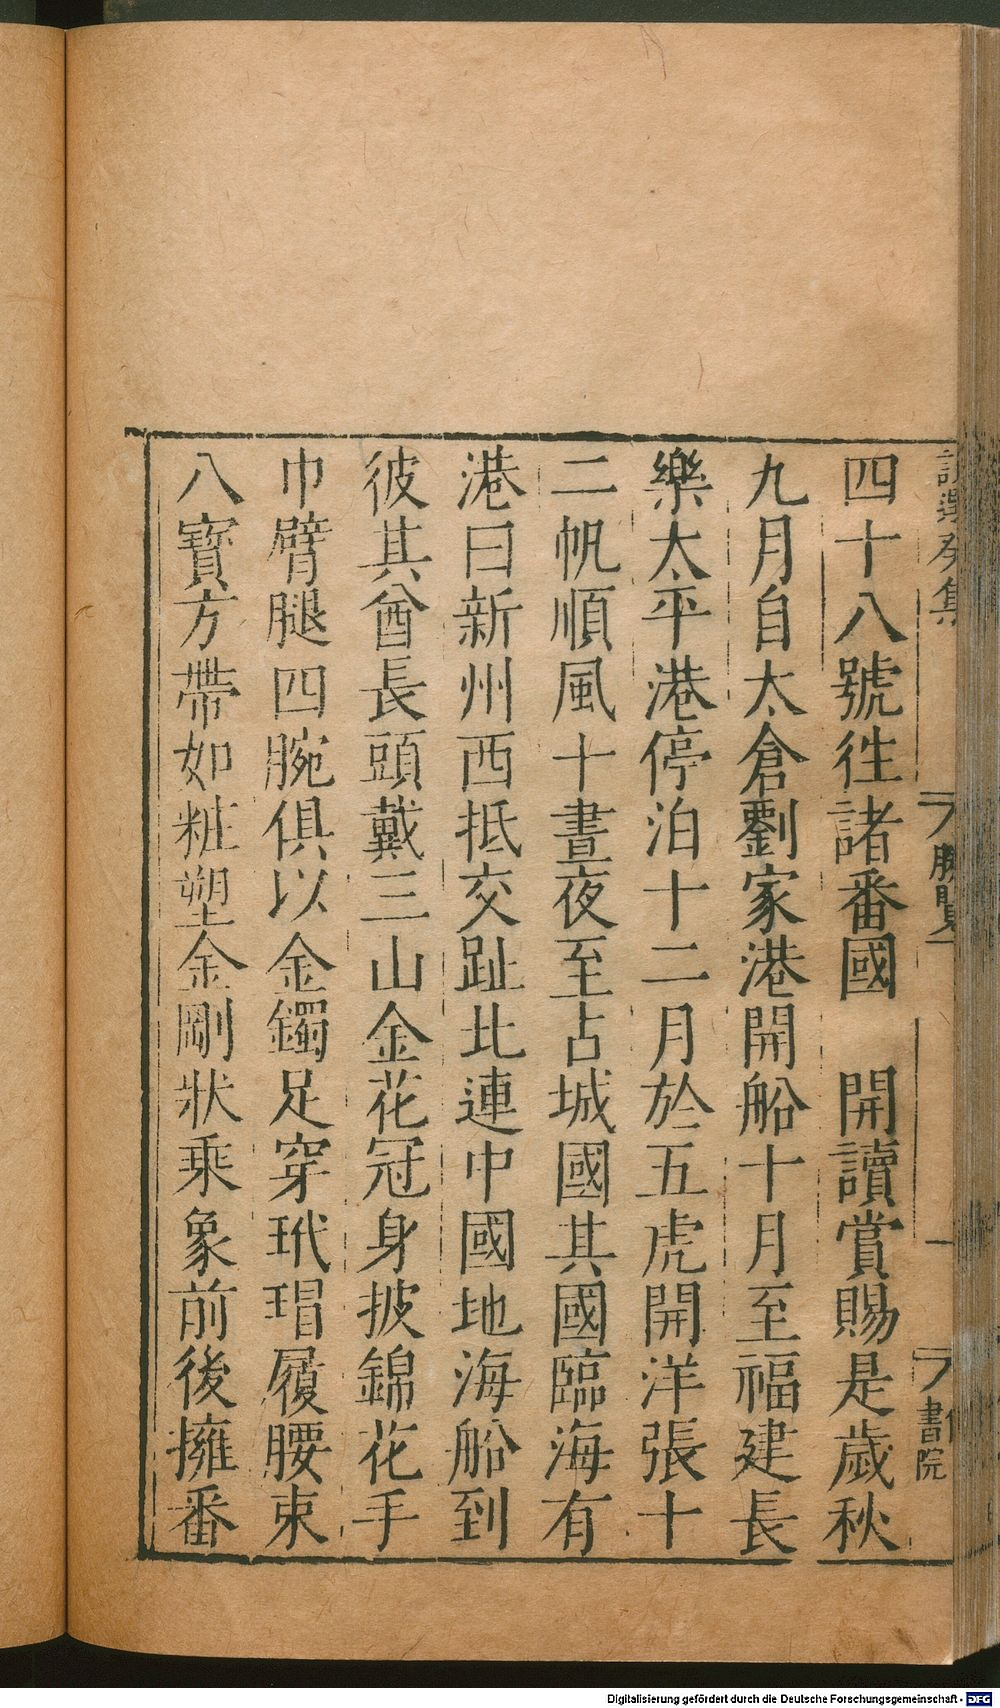 四十八號徃諸番國　開讀賞賜是歲秋
九月自太倉劉家港開船十月至福建長
樂太平港停泊十二月於五虎開洋張十
二帆順風十晝夜至占城國其國臨海有
港曰新州西抵交趾北連中國地海船到
彼其酋長頭戴三山金花冠身披錦花手
巾臂腿四腕俱以金鐲足穿玳瑁履腰束
八寶方帶如粧塑金剛狀乘象前後擁番
勝覽
一
書院
Digitalisierung gefördert durch die Deutsche Forschungsgemeinschaft - DFG